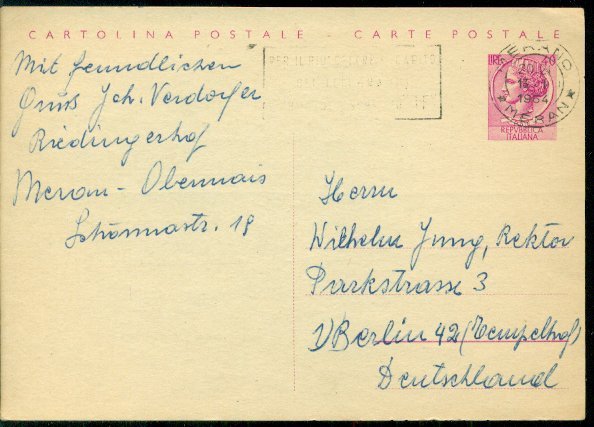 CARTOLINA POSTALE - CARTE POSTALE
Mit freundlichen
Gruss Joh. Verdorfer
Riedingerhof
Meran - Obermais
Schönnastr. 18
LIRE 40
MERANO
1964
* MERAN *
REPVBBLICA
ITALIANA
Herrn
Wilhelm Jung, Rektor
Parkstrasse 3
Berlin 42 (Tempelhof)
Deutschland